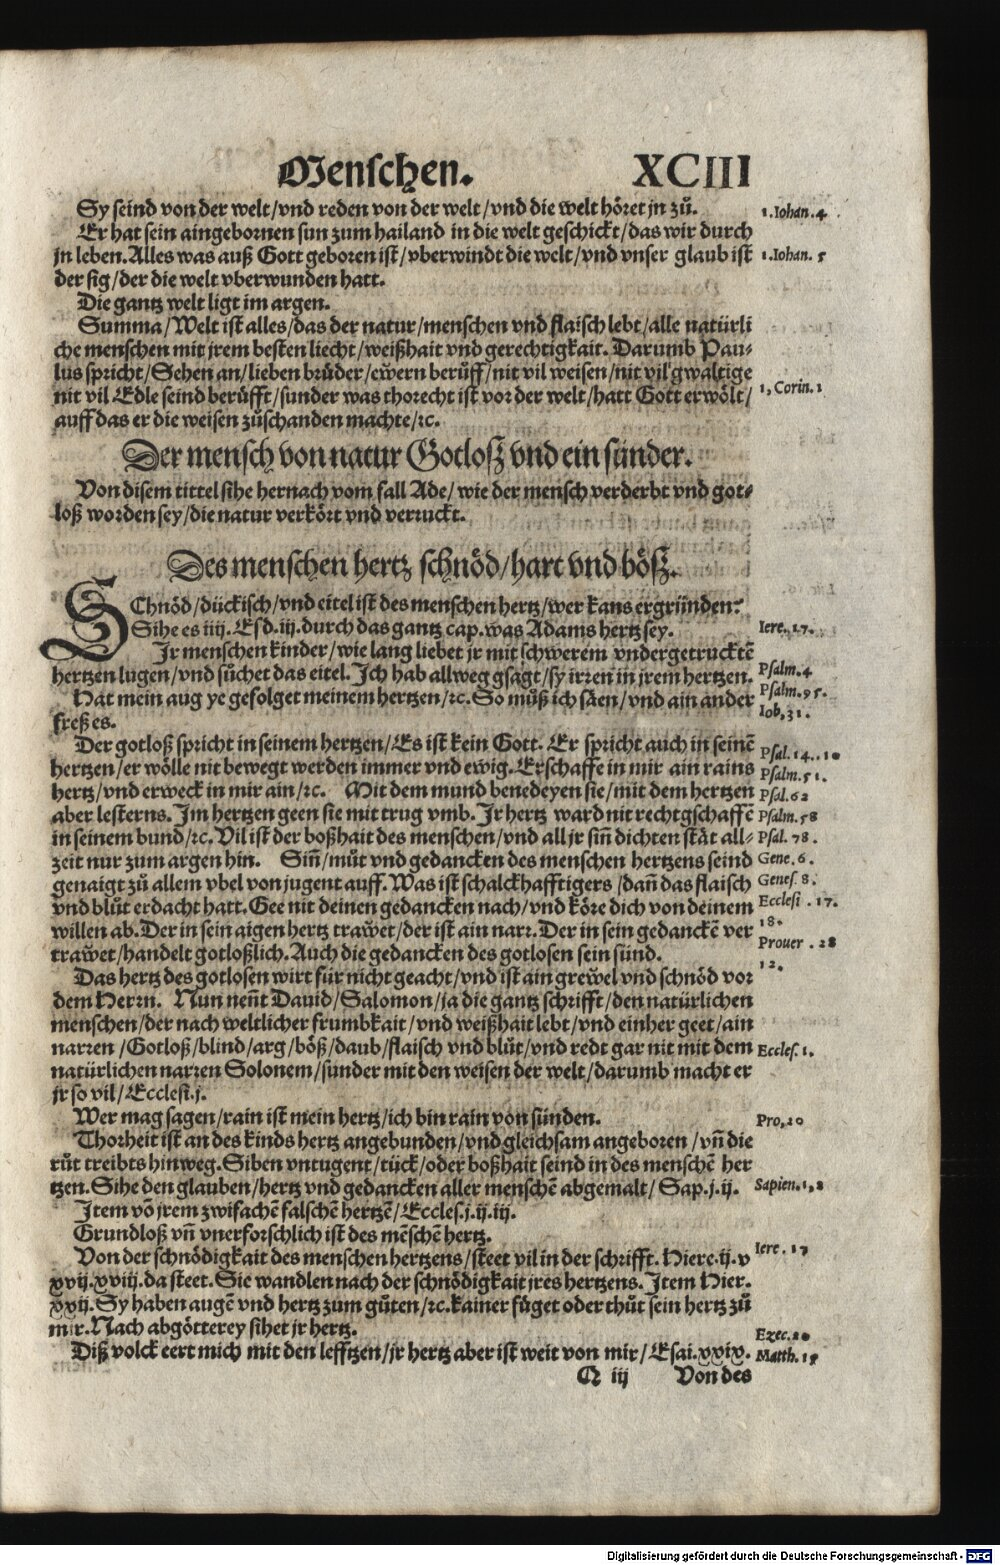 Menschen. XCIII
Sy seind von der welt/vnd reden von der welt/vnd die welt höret jn zů. 1.Iohan.4.
Er hat sein aingebornen sun zum hailand in die welt geschickt/das wir durch
jn leben. Alles was auß Gott geboren ist/vberwindt die welt/vnd vnser glaub ist 1.Iohan.5
der sig/der die welt vberwunden hatt.
Die gantz welt ligt im argen.
Summa/Welt ist alles/das der natur/menschen vnd flaisch lebt/alle natürli
che menschen mit jrem besten liecht/weißhait vnd gerechtigkait. Darumb Pau⸗
lus spricht/Sehen an/lieben brůder/ewern berůff/nit vil weisen/nit vil gwaltige
nit vil Edle seind berůfft/sunder was thorecht ist vor der welt/hatt Gott erwölt/ 1.Corin.1
auff das er die weisen zůschanden machte/ꝛc.
Der mensch von natur Gotloß vnd ein sünder.
Von disem tittel sihe hernach vom fall Ade/wie der mensch verderbt vnd got⸗
loß worden sey/die natur verkört vnd verruckt.
Des menschen hertz schnöd/hart vnd böß.
SChnöd/dückisch/vnd eitel ist des menschen hertz/wer kans ergründen?
Sihe es iiij. Esd.iij.durch das gantz cap.was Adams hertz sey. Iere.17.
Jr menschen kinder/wie lang liebet jr mit schwerem vndergetrucktē
hertzen lugen/vnd sůchet das eitel. Ich hab allweg gsagt/sy irren in jrem hertzen. Psalm.4
Hat mein aug ye gefolget meinem hertzen/ꝛc. So můß ich säen/vnd ain ander Psalm.95.
freß es. Iob.31.
Der gotloß spricht in seinem hertzen/Es ist kein Gott. Er spricht auch in seinē Psal.14..10
hertzen/er wölle nit bewegt werden immer vnd ewig. Erschaffe in mir ain rains Psalm.51.
hertz/vnd erweck in mir ain/ꝛc. Mit dem mund benedeyen sie/mit dem hertzen Psal.62
aber lesterns. Im hertzen geen sie mit trug vmb. Ir hertz ward nit rechtgschaffē Psalm.58
in seinem bund/ꝛc. Vil ist der boßhait des menschen/vnd all jr siñ dichten stät all⸗ Psal.78.
zeit nur zum argen hin. Siñ/můt vnd gedancken des menschen hertzens seind Gene.6.
genaigt zů allem vbel von jugent auff. Was ist schalckhafftigers/dañ das flaisch Genes.8.
vnd blůt erdacht hatt. Gee nit deinen gedancken nach/vnd köre dich von deinem Ecclesi.17.
willen ab. Der in sein aigen hertz trawet/der ist ain narr. Der in sein gedanckē ver 18.
trawet/handelt gotloßlich. Auch die gedancken des gotlosen sein sünd. Prouer.28
Das hertz des gotlosen wirt für nicht geacht/vnd ist ain grewel vnd schnöd vor 12.
dem Herrn. Nun neñt Dauid/Salomon/ja die gantz schrifft/den natürlichen
menschen/der nach weltlicher frumbkait/vnd weißhait lebt/vnd einher geet/ain
narren/Gotloß/blind/arg/böß/daub/flaisch vnd blůt/vnd redt gar nit mit dem Eccles.1.
natürlichen narren Solonem/sunder mit den weisen der welt/darumb macht er
jr so vil/Ecclesi.j.
Wer mag sagen/rain ist mein hertz/ich bin rain von sünden. Pro.20
Thorheit ist an des kinds hertz angebunden/vnd gleichsam angeboren/vñ die
růt treibts hinweg. Siben vntugent/tück/oder boßhait seind in des menschē her
tzen. Sihe den glauben/hertz vnd gedancken aller menschē abgemalt/Sap.j.ij. Sapien.1,2
Item vō jrem zwifachē falschē hertzē/Eccles.j.ij.iij.
Grundloß vñ vnerforschlich ist des mēschē hertz.
Von der schnödigkait des menschen hertzens/steet vil in der schrifft. Hiere.ij.v Iere.17
xvij.xviij.da steet. Sie wandlen nach der schnödigkait jres hertzens. Item Hier.
xxij. Sy haben augē vnd hertz zum gůten/ꝛc.kainer füget oder thůt sein hertz zů
mir. Nach abgötterey sihet jr hertz. Ezec.20
Diß volck eert mich mit den lefftzen/jr hertz aber ist weit von mir/Esai.xxix. Matth.15
Q iij Von des
Digitalisierung gefördert durch die Deutsche Forschungsgemeinschaft - DFG